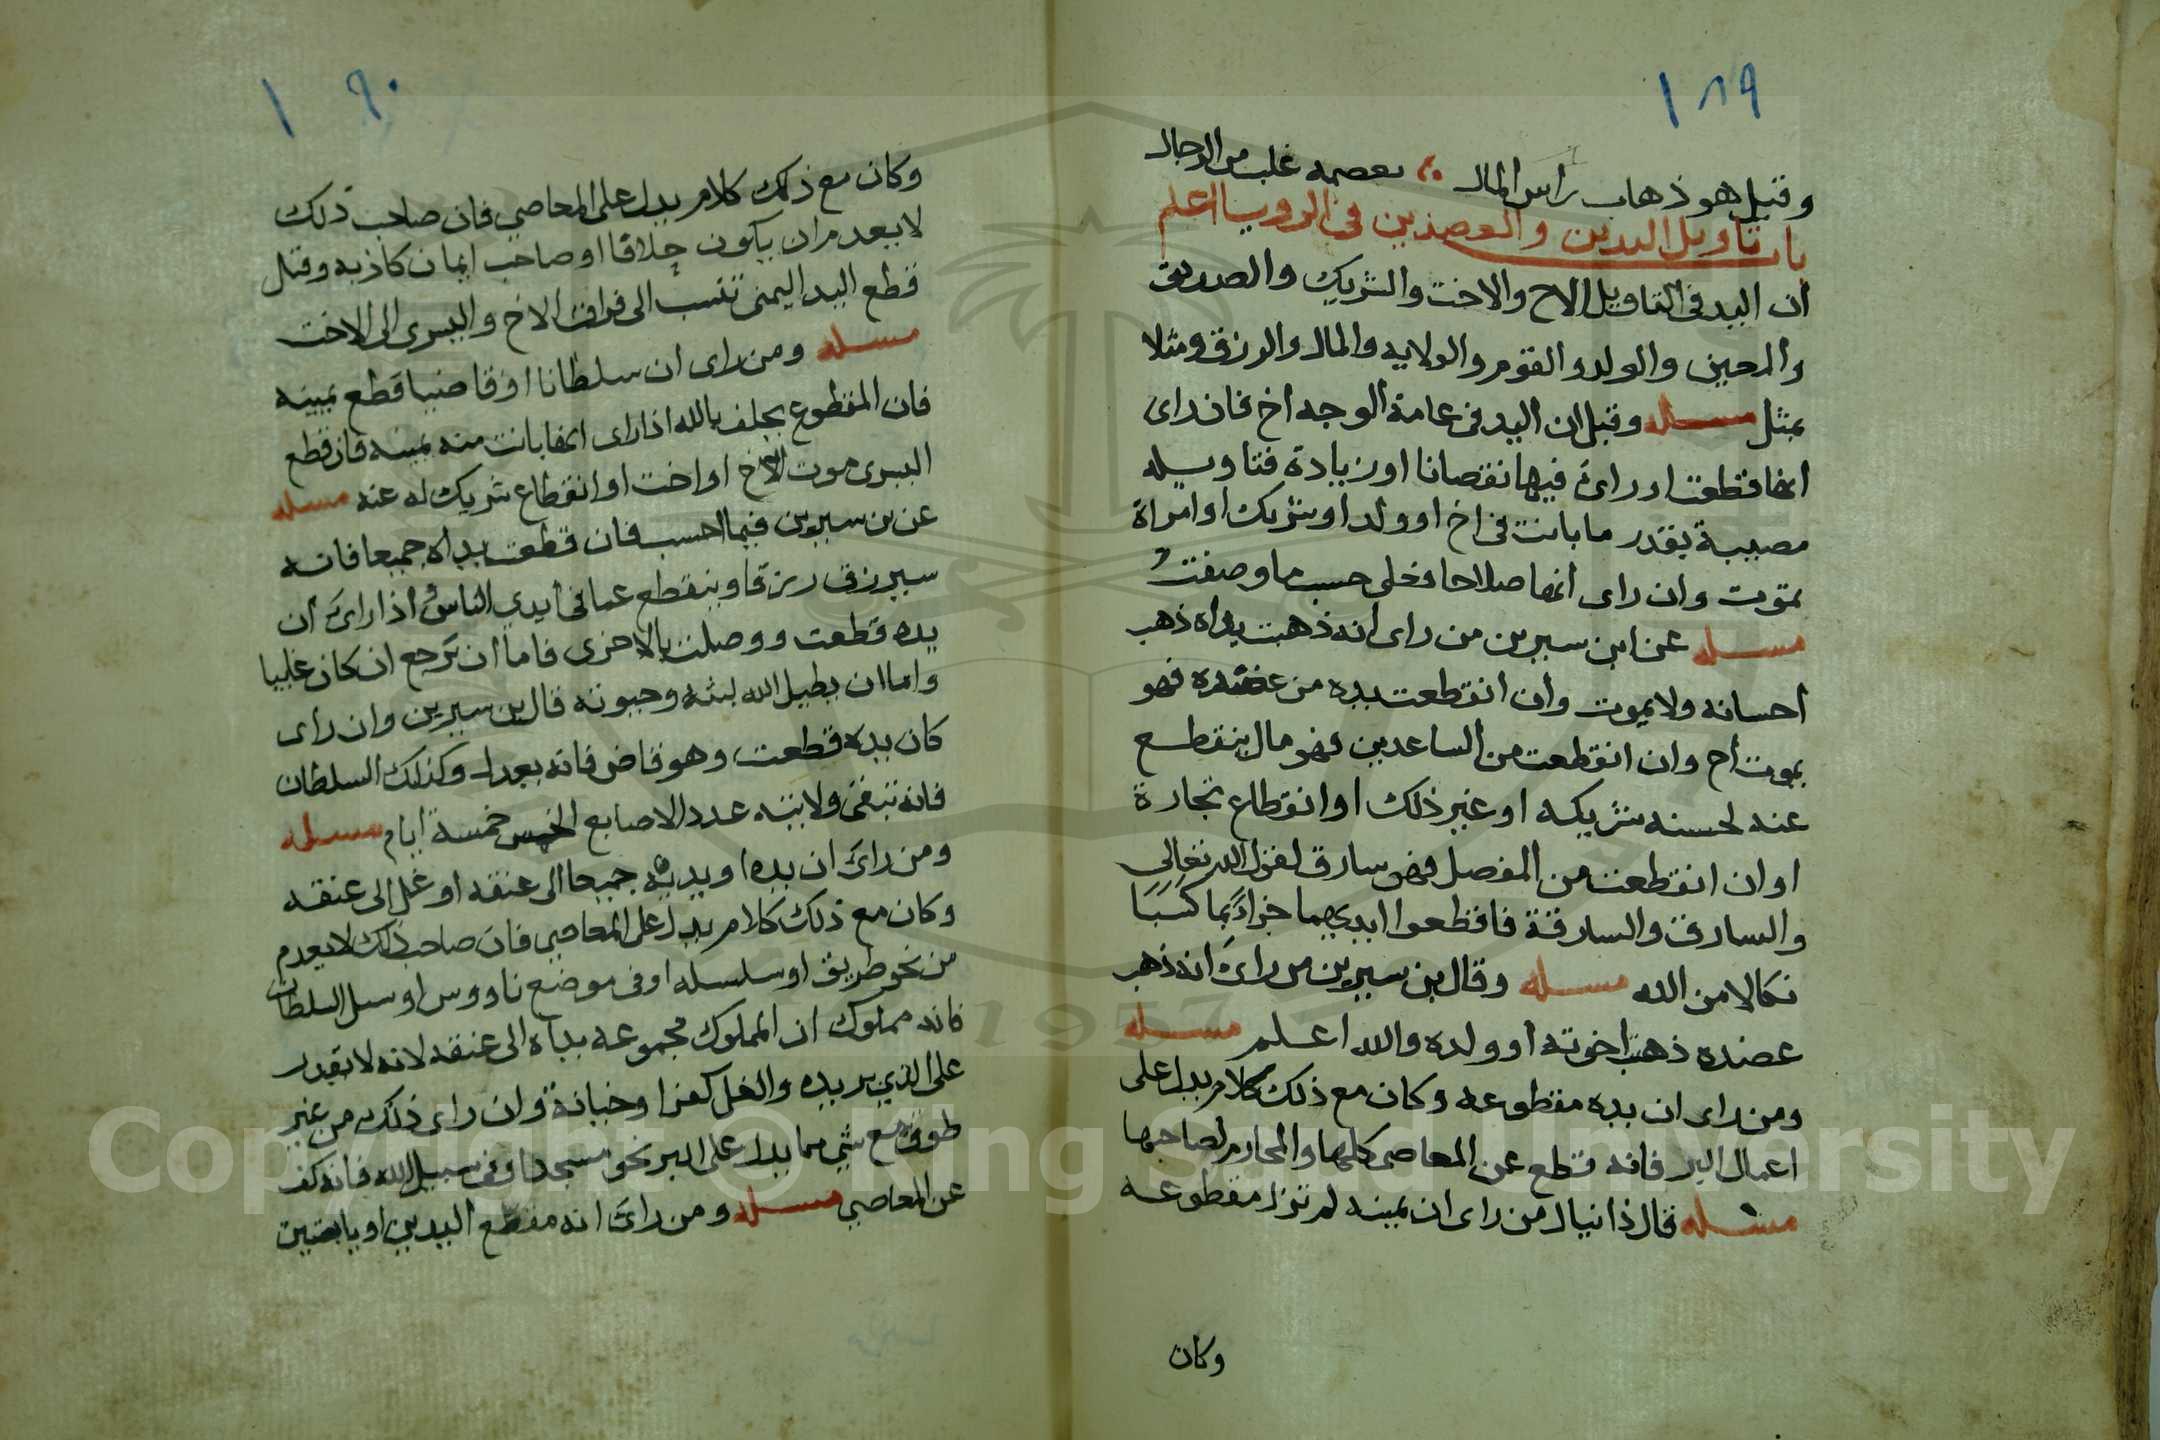 ١٨٩
وقيل هو ذهاب راس المال بعصمه غلب من الرجال
باب تاويل اليدين والعضدين في الرويا اعلم
ان اليد في التاويل الاخ والاخت والشريك والصديق
والمعين والولد والقوم والولايه والمال والرزق ومثلا
بمثل مسله وقيل ان اليد في عامة الوجه اخ فان راى
انها قطعت او راى فيها نقصانا او زيادة فتاويله
مصيبة بقدر ما بانت في اخ او ولد او شريك او امراة
تموت وان راى انها صلاحا فعلى حسب ما وصفت
مسله عن ابن سيرين من راى انه ذهبت يداه ذهب
احسانه ولا يموت وان انقطعت يده من عضده فهو
بموت اخ وان انقطعت من الساعدين فهو مال ينقطع
عنه لحسنه شريكه او غير ذلك او انقطاع تجارة
او ان انقطعت من المفصل فهو سارق لقول الله تعالى
والسارق والسارقة فاقطعوا ايديهما جزاء بما كسبا
نكالا من الله مسله وقال بن سيرين من راى انه ذهب
عضده ذهب اخوته او ولده والله اعلم مسله
ومن راى ان يده مقطوعه وكان مع ذلك كلام يدل على
اعمال البر فانه قطع عن المعاصي كلها والمحارم لصاحبها
مسله قال ذانيال من راى ان يمينه لم تزل مقطوعه
وكان
١٩٠
وكان مع ذلك كلام يدل على المعاصي فان صاحب ذلك
لا بعد من ان يكون حلافا او صاحب ايمان كاذبه وقيل
قطع اليد اليمنى تنسب الى فراق الاخ واليسرى الى الاخت
مسله ومن راى ان سلطانا او قاضيا قطع يمينه
فان المقطوع يحلف بالله اذا راى انها بانت منه يمينه فان قطع
اليسرى موت الاخ او اخت او انقطاع شريك له عنه مسله
عن بن سيرين فيما احسب فان قطعت يداه جميعا فانه
سيرزق رزقا وينقطع عما في ايدي الناس واذا راى ان
يده قطعت ووصلت بالاخرى فاما ان ترجع ان كان غايبا
واما ان يطيل الله لبثه وحيوته قال بن سيرين وان راى
كان يده قطعت وهو قاض فانه يعدل وكذلك السلطان
فانه تبقى ولايته عدد الاصابع الخمس خمسة ايام مسله
ومن راى ان يده او يديه جميعا الى عنقه او غل الى عنقه
وكان مع ذلك كلام يدل على المعاصي فان صاحب ذلك لا يعدم
من نحو طريق او سلسله او في موضع ناووس او سبل السلطان
فانه مملوك ان المملوك مجموعه يداه الى عنقه لانه لا يقدر
على الذي يريده والغل كفر او خيانة وان راى ذلك من غير
طوق مع شي مما يدل على البر نحو مسجد او في سبيل الله فانه كف
عن المعاصي مسله ومن راى انه مقطع اليدين او يابستين
Copyright © King Saud University
1957